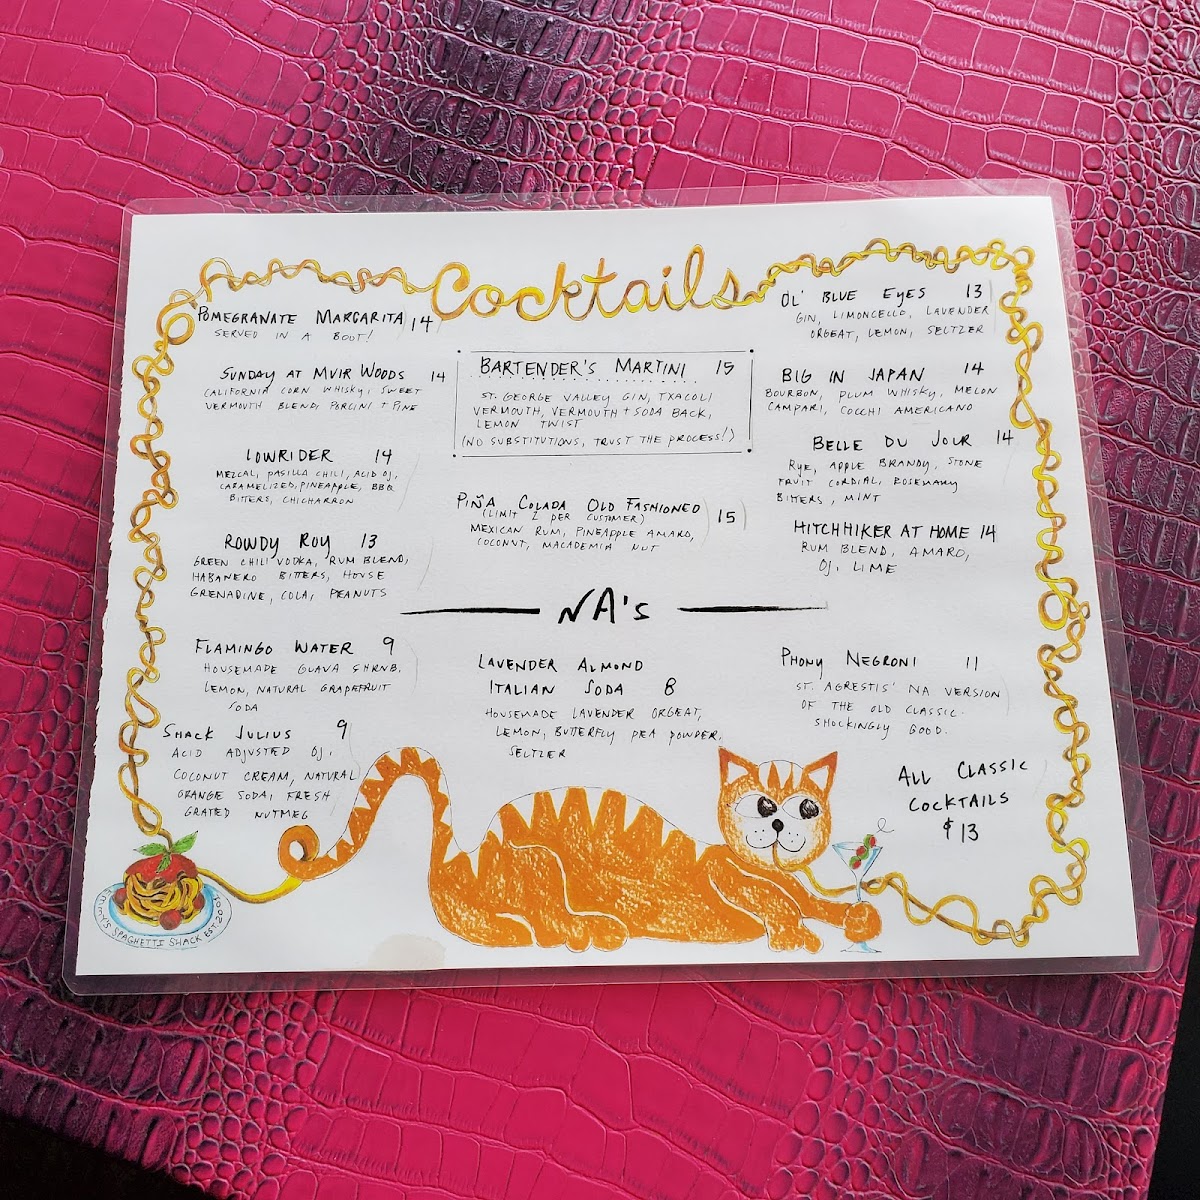 Cocktails
POMEGRANATE MARGARITA 14
SERVED IN A BOOT!
SUNDAY AT MUIR WOODS 14
CALIFORNIA CORN WHISKY, SWEET
VERMOUTH BLEND, PORCINI + PINE
LOWRIDER 14
MEZCAL, PASILLA CHILI, ACID OJ,
CARAMELIZED PINEAPPLE, BBQ
BITTERS, CHICHARRON
ROWDY ROY 13
GREEN CHILI VODKA, RUM BLEND,
HABANERO BITTERS, HOUSE
GRENADINE, COLA, PEANUTS
BARTENDER'S MARTINI 15
ST. GEORGE VALLEY GIN, TXACOLI
VERMOUTH, VERMOUTH + SODA BACK,
LEMON TWIST
(NO SUBSTITUTIONS, TRUST THE PROCESS!)
PIÑA COLADA OLD FASHIONED 15
(LIMIT 2 PER CUSTOMER)
MEXICAN RUM, PINEAPPLE AMARO,
COCONUT, MACADEMIA NUT
OL' BLUE EYES 13
GIN, LIMONCELLO, LAVENDER
ORGEAT, LEMON, SELTZER
BIG IN JAPAN 14
BOURBON, PLUM WHISKY, MELON
CAMPARI, COCCHI AMERICANO
BELLE DU JOUR 14
RYE, APPLE BRANDY, STONE
FRUIT CORDIAL, ROSEMARY
BITTERS, MINT
HITCHHIKER AT HOME 14
RUM BLEND, AMARO,
OJ, LIME
NA's
FLAMINGO WATER 9
HOUSEMADE GUAVA SHRUB,
LEMON, NATURAL GRAPEFRUIT
SODA
SHACK JULIUS 9
ACID ADJUSTED OJ,
COCONUT CREAM, NATURAL
ORANGE SODA, FRESH
GRATED NUTMEG
LAVENDER ALMOND
ITALIAN SODA 8
HOUSEMADE LAVENDER ORGEAT,
LEMON, BUTTERFLY PEA POWDER,
SELTZER
PHONY NEGRONI 11
ST. AGRESTIS' NA VERSION
OF THE OLD CLASSIC.
SHOCKINGLY GOOD.
ALL CLASSIC
COCKTAILS
$13
SPAGHETTI SHACK EST. 2001